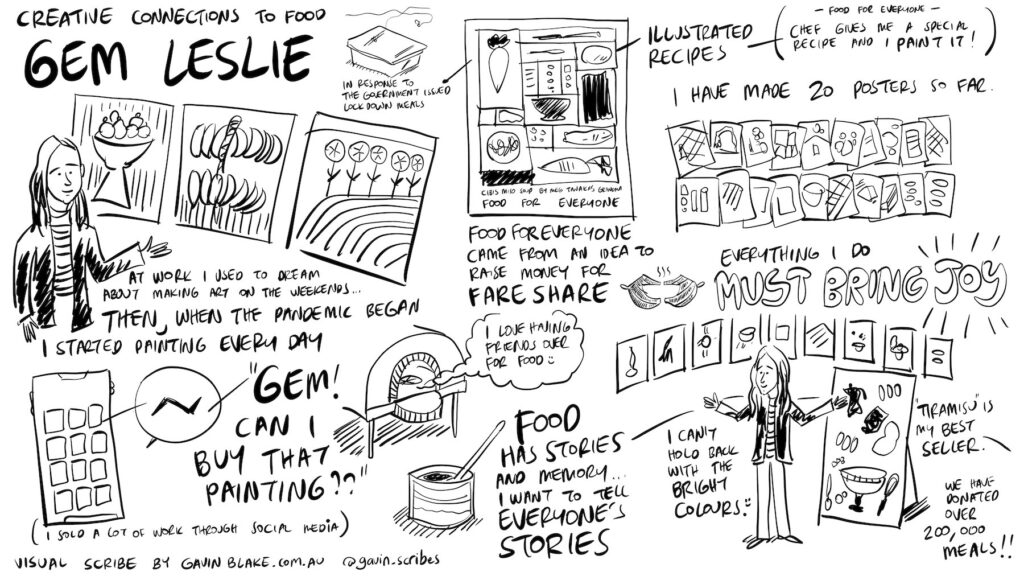 CREATIVE CONNECTIONS TO FOOD
GEM LESLIE
IN RESPONSE TO
THE GOVERNMENT ISSUED
LOCKDOWN MEALS
AT WORK I USED TO DREAM
ABOUT MAKING ART ON THE WEEKENDS...
THEN, WHEN THE PANDEMIC BEGAN
I STARTED PAINTING EVERY DAY
"GEM!
CAN I
BUY THAT
PAINTING??"
(I SOLD A LOT OF WORK THROUGH SOCIAL MEDIA)
VISUAL SCRIBE BY GAVIN BLAKE.COM.AU @gavin_scribes
SOUP BY
FOOD FOR EVERYONE
ILLUSTRATED
RECIPES
- FOOD FOR EVERYONE -
(CHEF GIVES ME A SPECIAL
RECIPE AND I PAINT IT!)
I HAVE MADE 20 POSTERS SO FAR.
FOOD FOR EVERYONE
CAME FROM AN IDEA TO
RAISE MONEY FOR
FARE SHARE
EVERYTHING I DO
MUST BRING JOY
I LOVE HAVING
FRIENDS OVER
FOR FOOD :)
FOOD
HAS STORIES
AND MEMORY...
I WANT TO TELL
EVERYONE'S
STORIES
I CAN'T
HOLD BACK
WITH THE
BRIGHT
COLOURS :)
"TIRAMISU" IS
MY BEST
SELLER.
WE HAVE
DONATED
OVER
200,000
MEALS!!